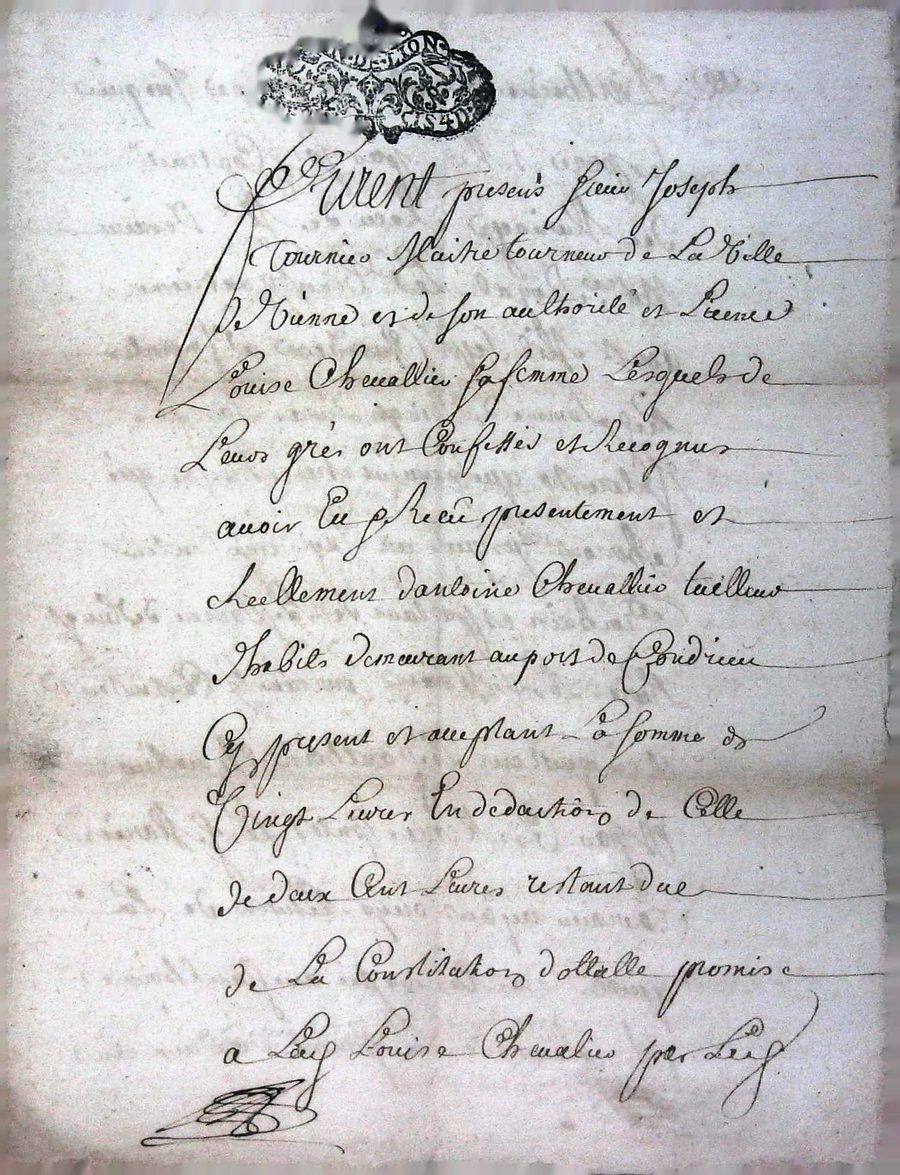 DE LION
1S4D
Furent presents sieur Joseph
Tournier Maitre tourneur de La Ville
de Vienne et de son authorité et Licence
Louise Chevallier sa femme Lesquels de
Leurs grés ont Confessés et Recognus
avoir Eu & Receu presentement et
Reellement d'antoine Chevallier tailleur
d'habits demeurant au port de Condrieu
Cy present et acceptant La somme de
Vingt Livres En deduction de Celle
de deux Cent Livres restant due
de La Constitution dottalle promise
a Lad Louise Chevalier par Led